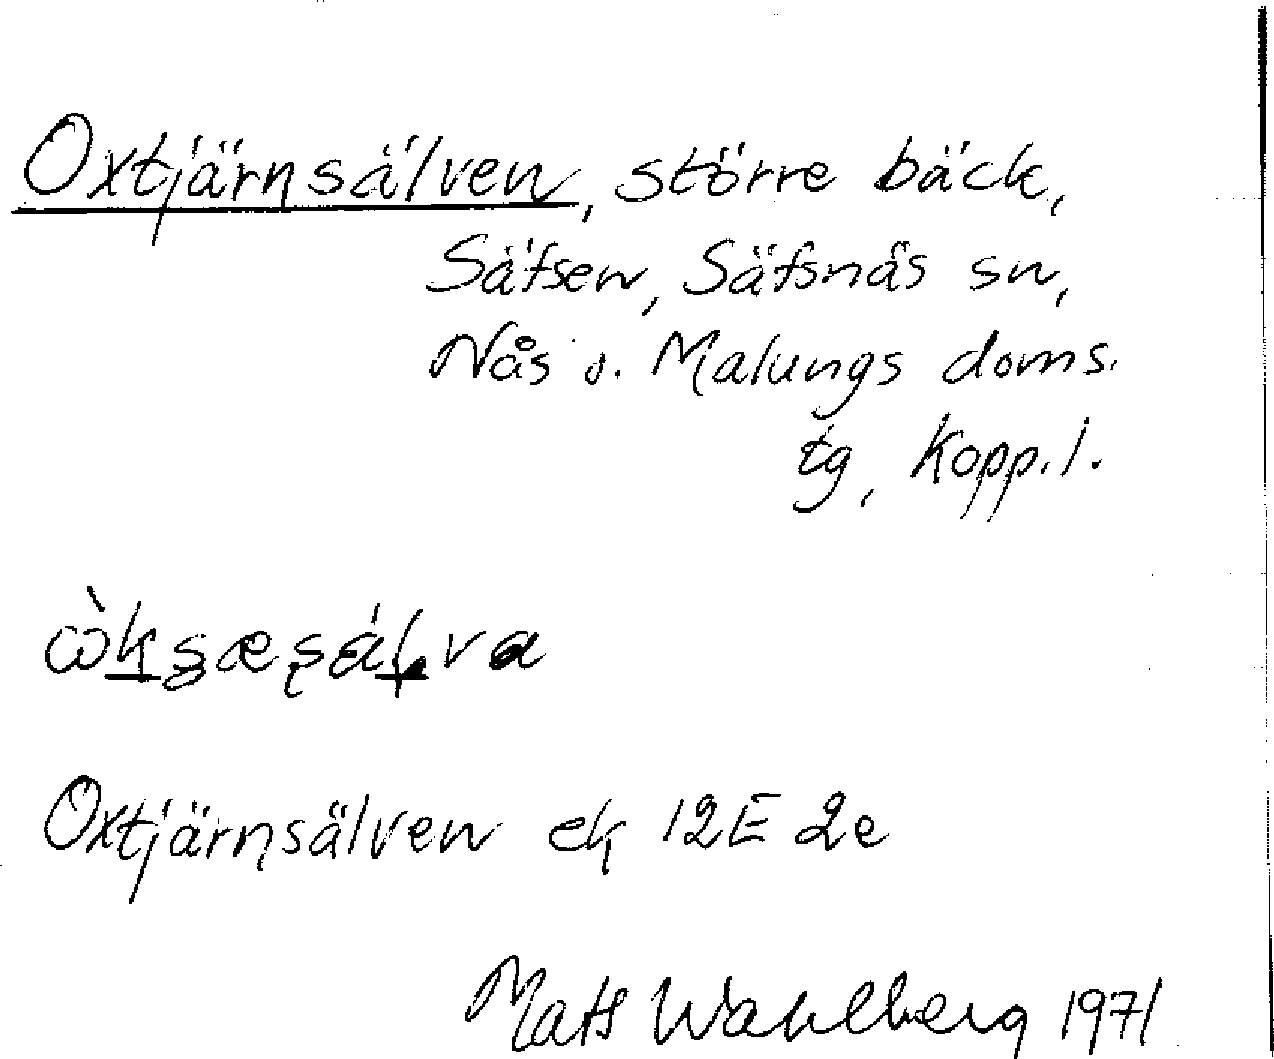 Oxtjärnsälven, större bäck,
Säfsen, Säfsnäs sn,
Nås o. Malungs doms.
tg, Kopp. l.
Oxtjärnsälven ek 12E 2e
Mats Wahlberg 1971